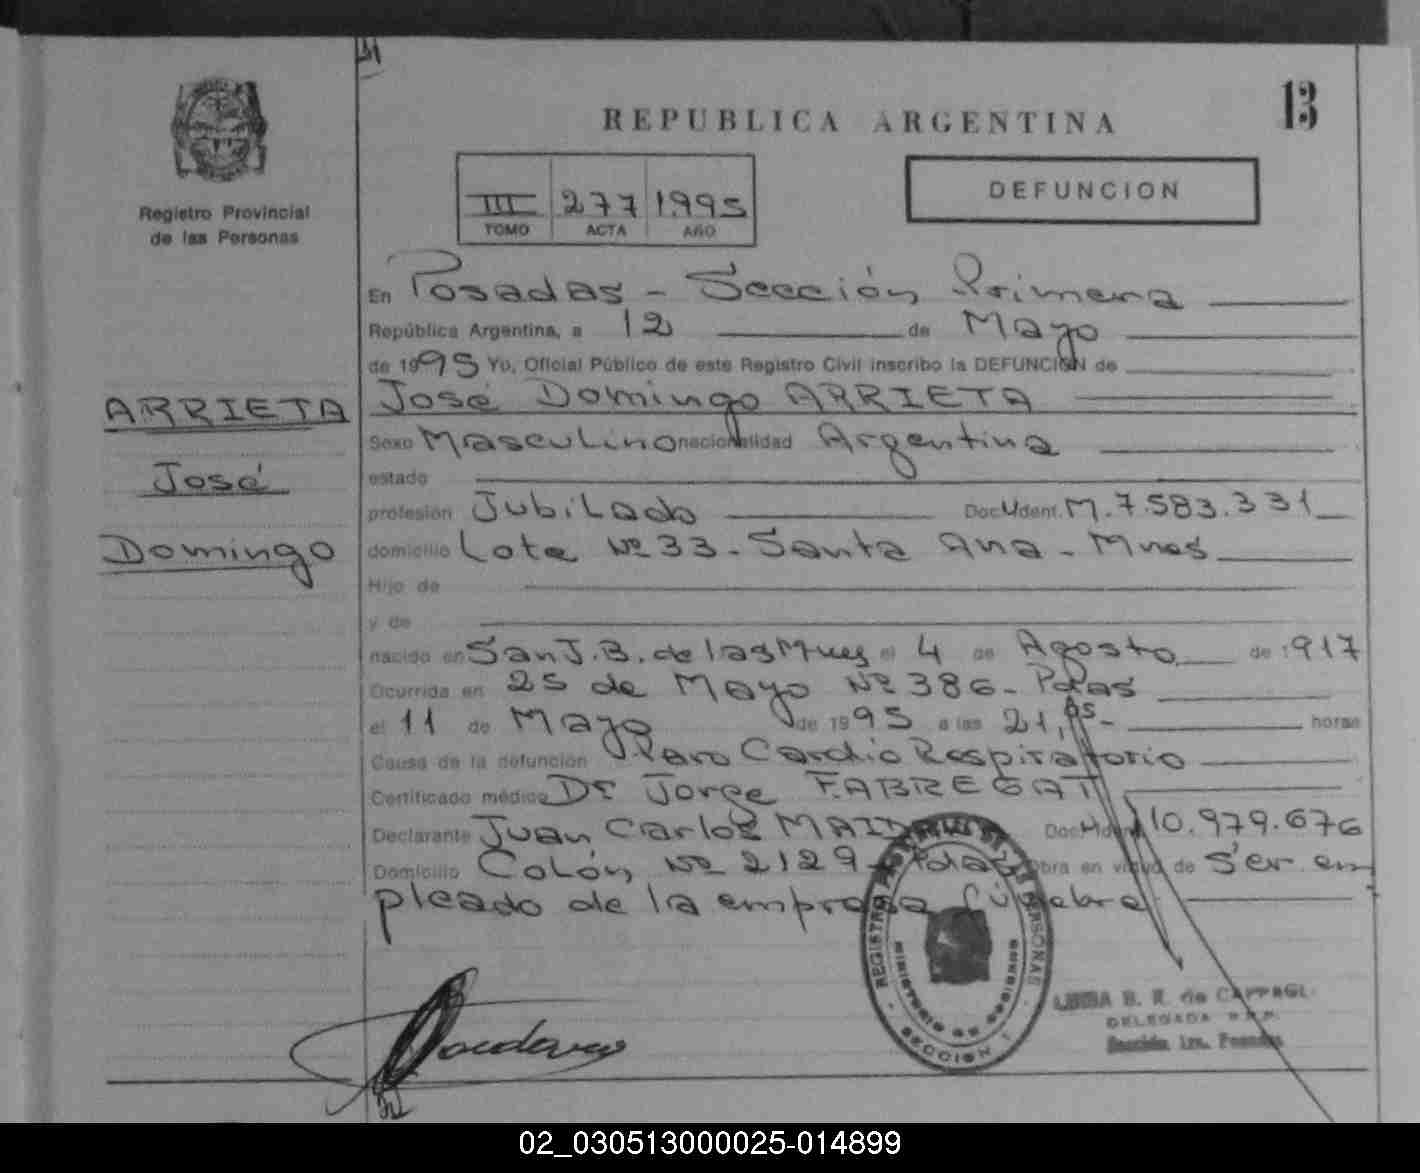 13
REPUBLICA ARGENTINA
DEFUNCION
III 277 1995
TOMO ACTA AÑO
Registro Provincial
de las Personas
En Posadas - Sección Primera
República Argentina, a 12 de Mayo
de 1995 Yo, Oficial Público de este Registro Civil inscribo la DEFUNCION de
ARRIETA
José Domingo ARRIETA
Sexo Masculino nacionalidad Argentina
José
estado
profesión Jubilado Doc. Ident. M. 7.583.331
Domingo
domicilio Lote Nº 33 - Santa Ana - Mnes
Hijo de
y de
nacido en San J. B. de las Mnes el 4 de Agosto de 1917
Ocurrida en 25 de Mayo Nº 386 - Pdas
el 11 de Mayo de 1995 a las 21,05 - horas
Causa de la defunción Paro Cardio Respiratorio
Certificado médico Dr Jorge FABREGAT
Declarante Juan Carlos Doc. Ident. 10.979.676
Domicilio Colón Nº 2129 - Pdas Obra en virtud de Ser em
pleado de la empresa fúnebre
REGISTRO PROVINCIAL DE LAS PERSONAS
MINISTERIO DE GOBIERNO
SECCION 1
B. R. de CAPPAGLI
DELEGADA R.P.P.
Sección 1ra. Posadas
02_030513000025-014899